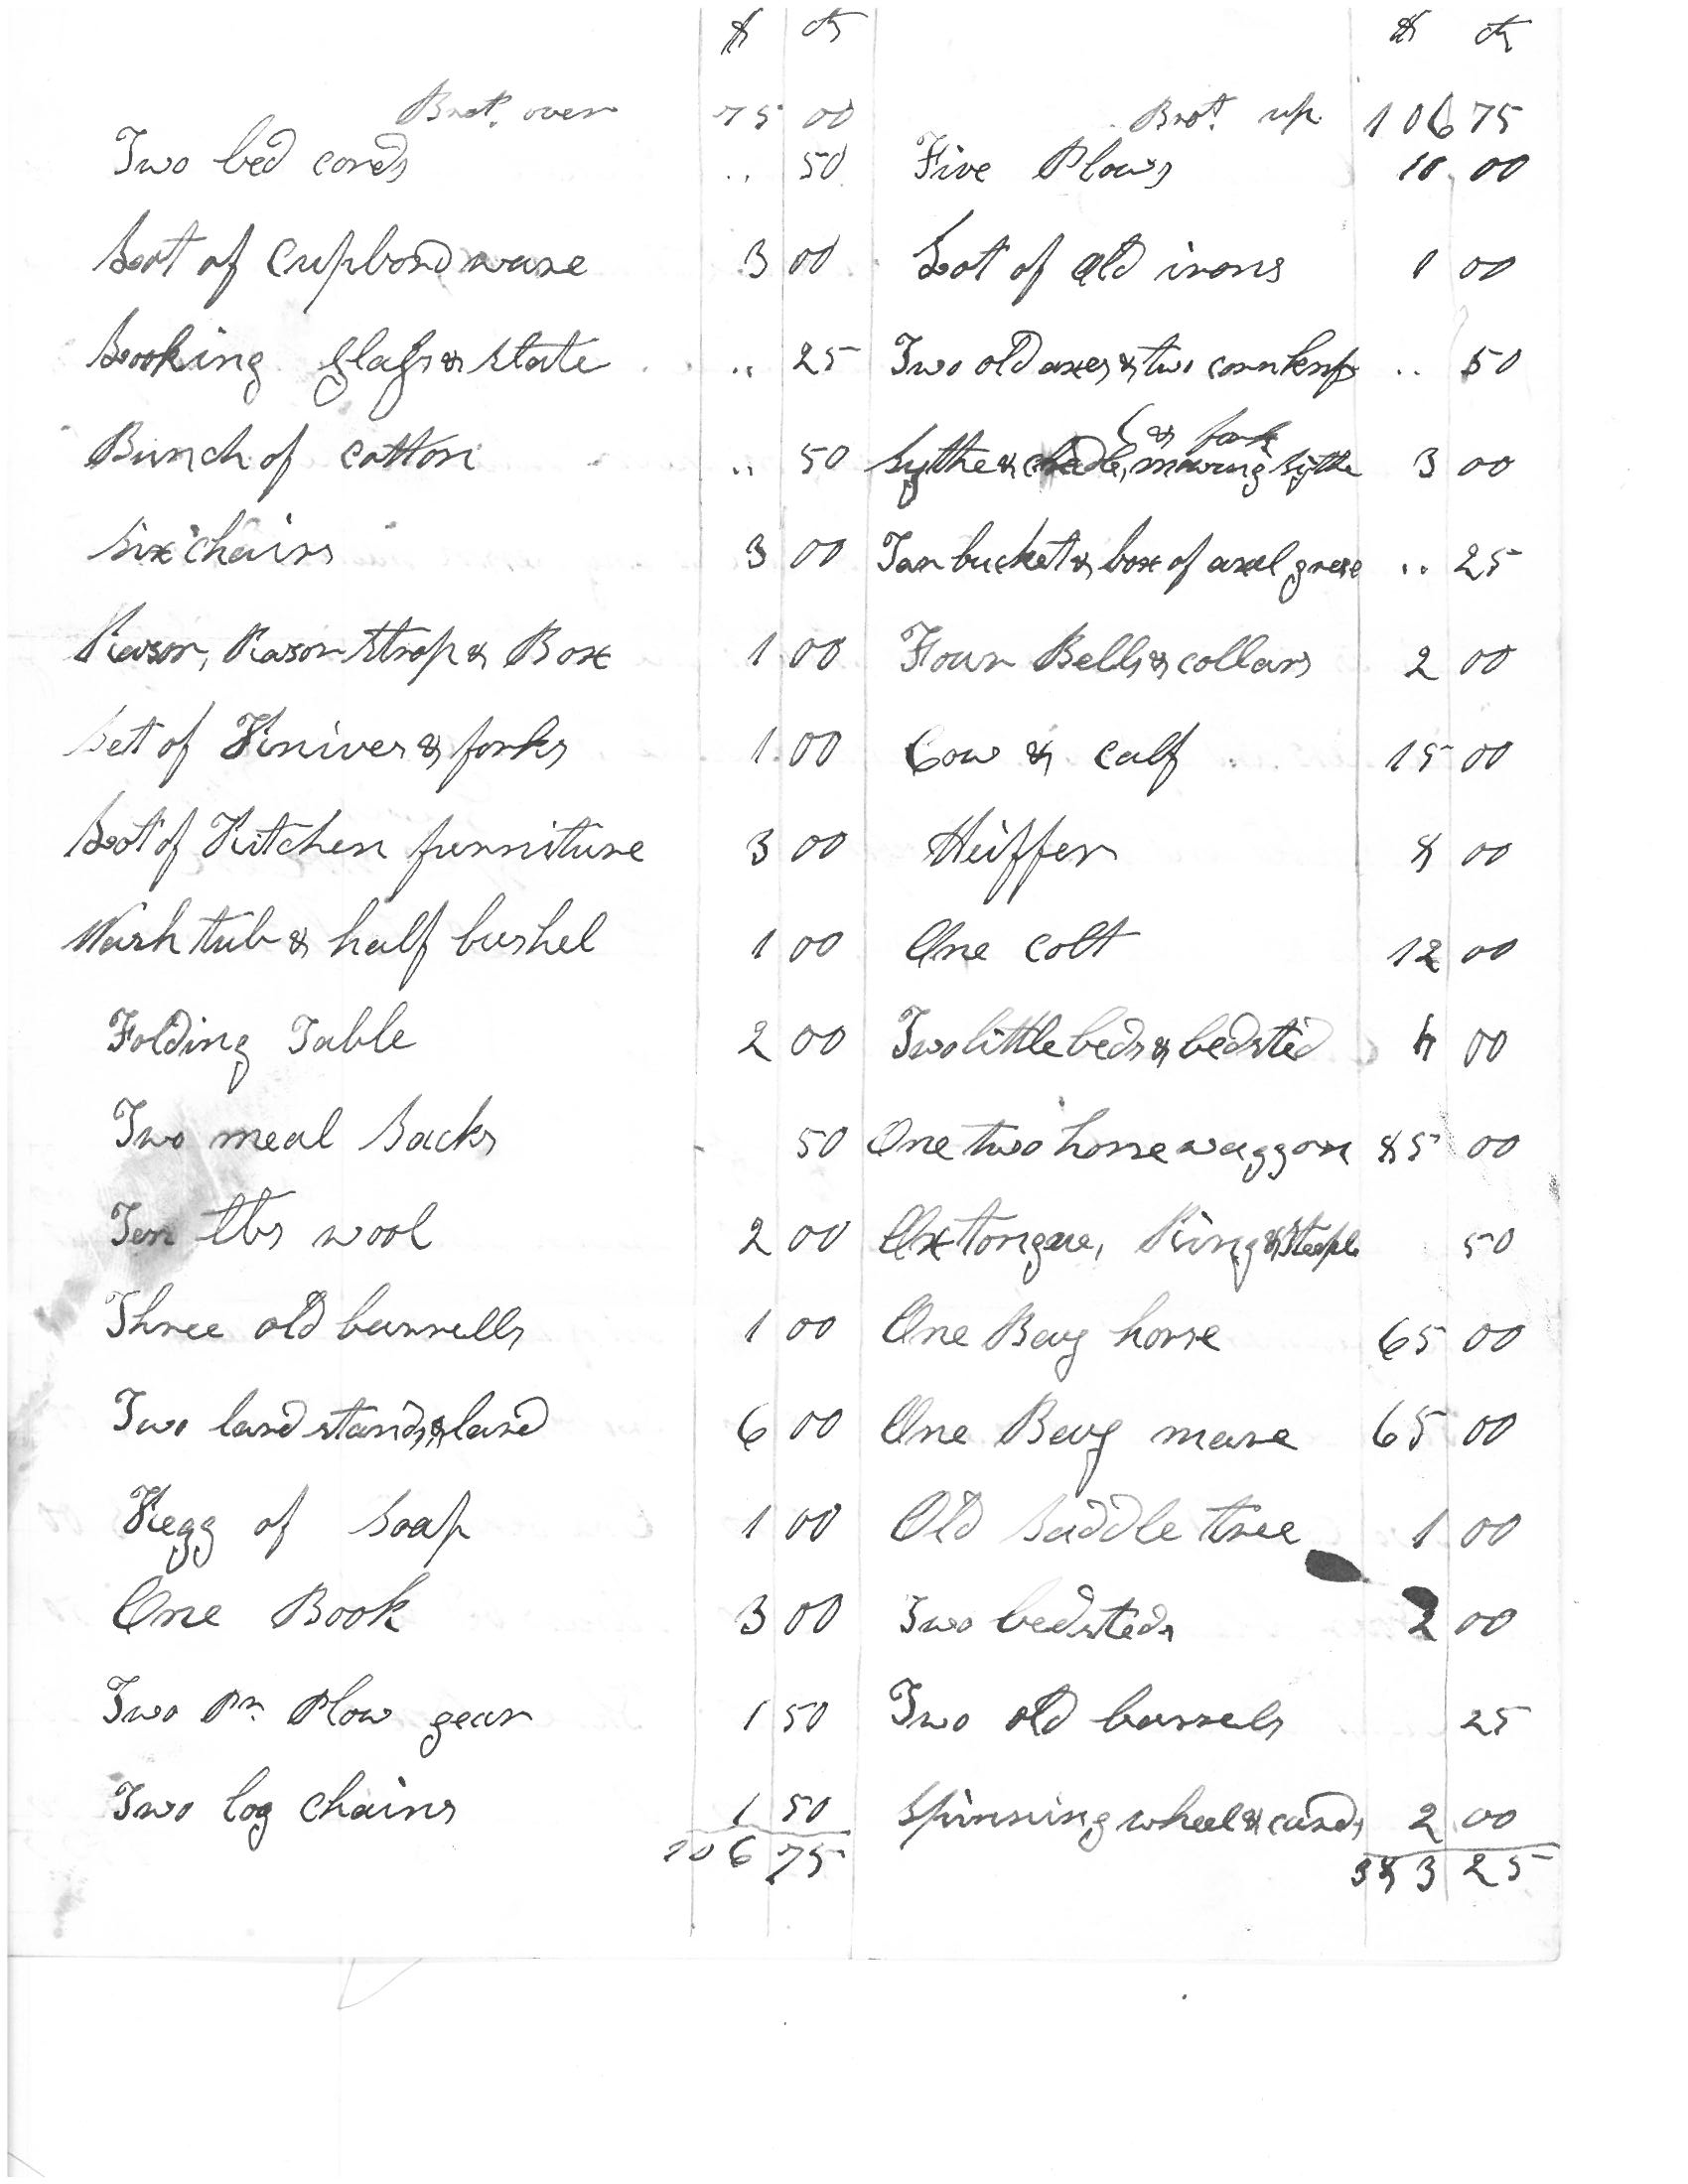 $ cts
Brot. over 75 00
Two bed cords .. 50
Lot of Cupbord ware 3 00
Looking glass & slate .. 25
Bunch of cotton .. 50
Six chairs 3 00
Rasor, Rasor strop & Box 1 00
Set of Knives & forks 1 00
Lot of Kitchen furniture 3 00
Wash tub & half bushel 1 00
Folding Table 2 00
Two meal Sacks 50
Ten lbs wool 2 00
Three old barrells 1 00
Two lard stands & lard 6 00
Kegg of Soap 1 00
One Book 3 00
Two Pr. Plow gear 1 50
Two log chains 1 50
106 75
$ cts
Brot. up 106 75
Five Plows 10 00
Lot of old irons 1 00
Two old axes & two corn knifs .. 50
& fork
Sythe & cradle, mowing sythe 3 00
Tar bucket & box of axel grese .. 25
Four Bells & collars 2 00
Cow & calf 15 00
Heiffer 8 00
One colt 12 00
Two little beds & bedsted 4 00
One two horse waggon 85 00
Ox tongue, Ring & Steaple 50
One Bay horse 65 00
One Bay mare 65 00
Old Saddle tree 1 00
Two bedsteds 2 00
Two old barrels 25
Spinning wheel & cards 2 00
383 25